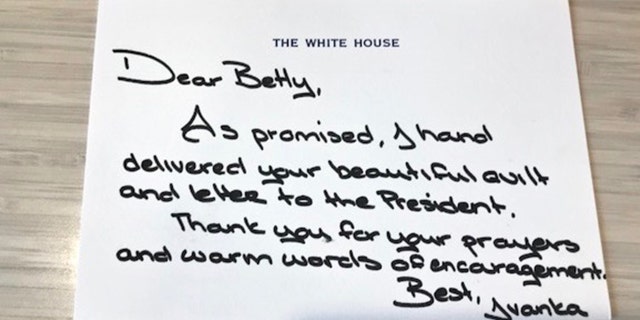 THE WHITE HOUSE
Dear Betty,
As promised, I hand
delivered your beautiful quilt
and letter to the President.
Thank you for your prayers
and warm words of encouragement.
Best, Ivanka